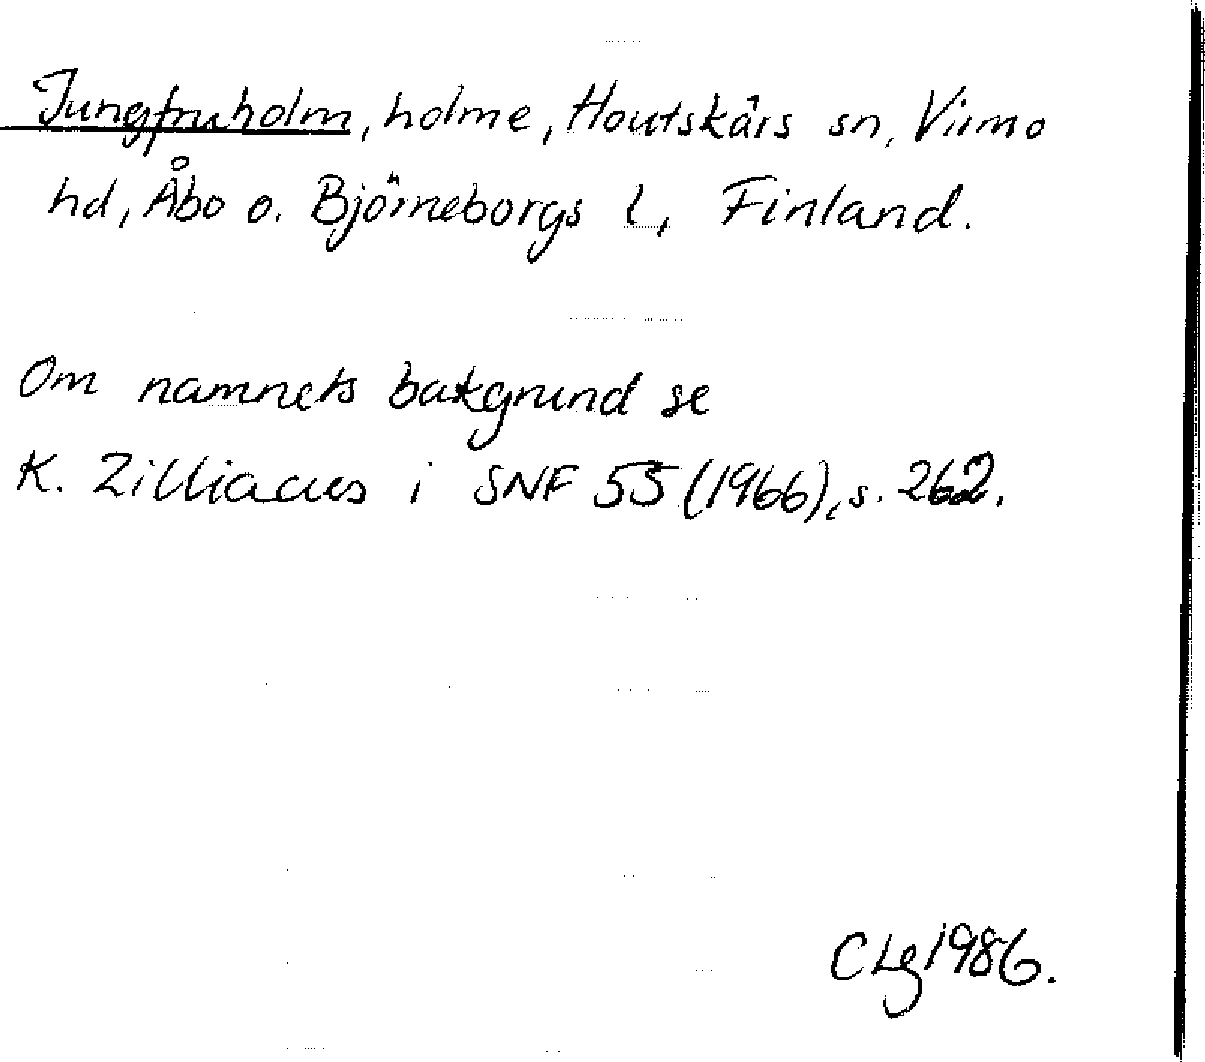 Jungfruholm, holme, Houtskärs sn, Virmo
hd, Åbo o. Björneborgs l, Finland.
Om namnets bakgrund se
K. Zilliacus i SNF 55 (1966), s. 262.
CLg 1986.